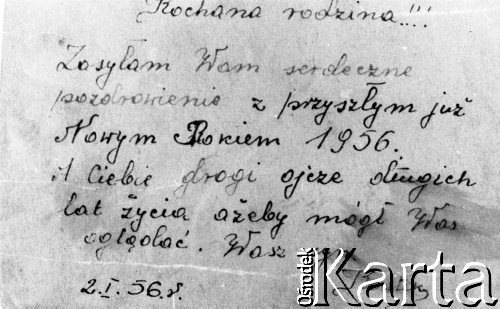 Kochana rodzina!!!
Zasyłam Wam serdeczne
pozdrowienie z przyszłym już
Nowym Rokiem 1956.
A Ciebie drogi ojcze długich
lat życia ażeby mógł Was
oglądać. Wasz
2.I.56.r.
Ośrodek
Karta